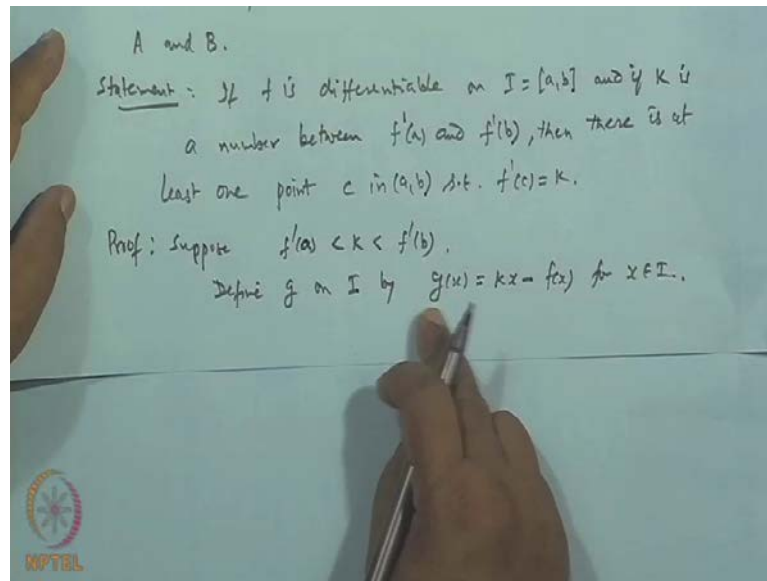 A and B.
Statement : If f is differentiable on I = [a,b] and if k is
a number between f'(a) and f'(b), then there is at
least one point c in (a,b) s.t. f'(c) = k.
Proof : Suppose f'(a) < k < f'(b).
Define g on I by g(x) = kx - f(x) for x ∈ I.
NPTEL